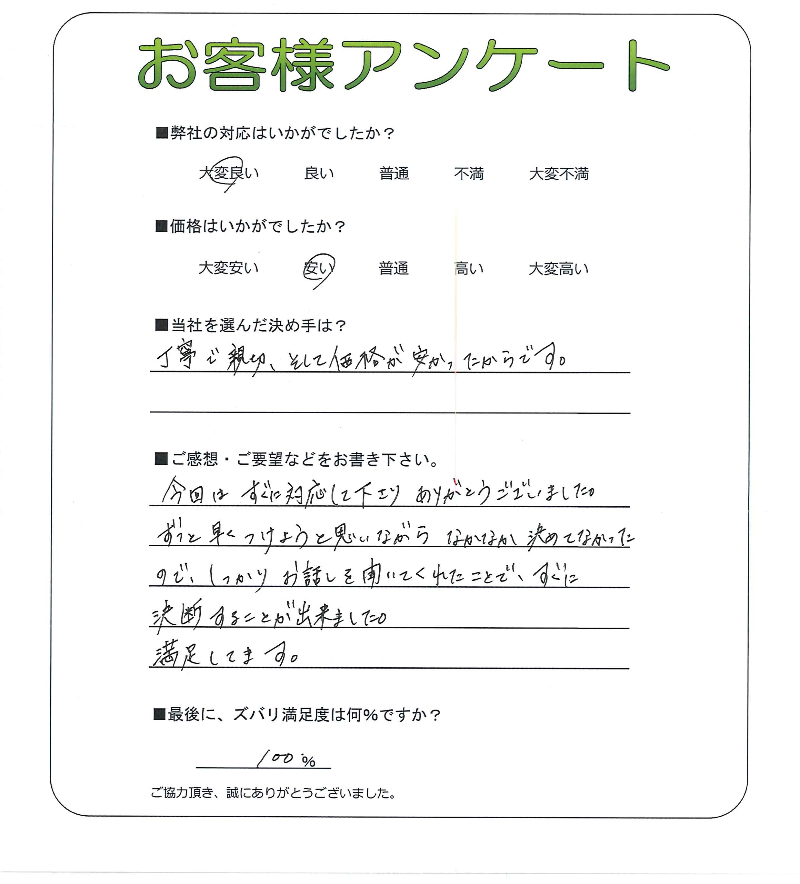 お客様アンケート
■弊社の対応はいかがでしたか？
大変良い 良い 普通 不満 大変不満
■価格はいかがでしたか？
大変安い 安い 普通 高い 大変高い
■当社を選んだ決め手は？
丁寧で親切、そして価格が安かったからです。
■ご感想・ご要望などをお書き下さい。
今回はすぐに対応して下さりありがとうございました。
ずっと早くつけようと思いながらなかなか決めてなかった
ので、しっかりお話しを聞いてくれたことで、すぐに
決断することが出来ました。
満足してます。
■最後に、ズバリ満足度は何％ですか？
100％
ご協力頂き、誠にありがとうございました。